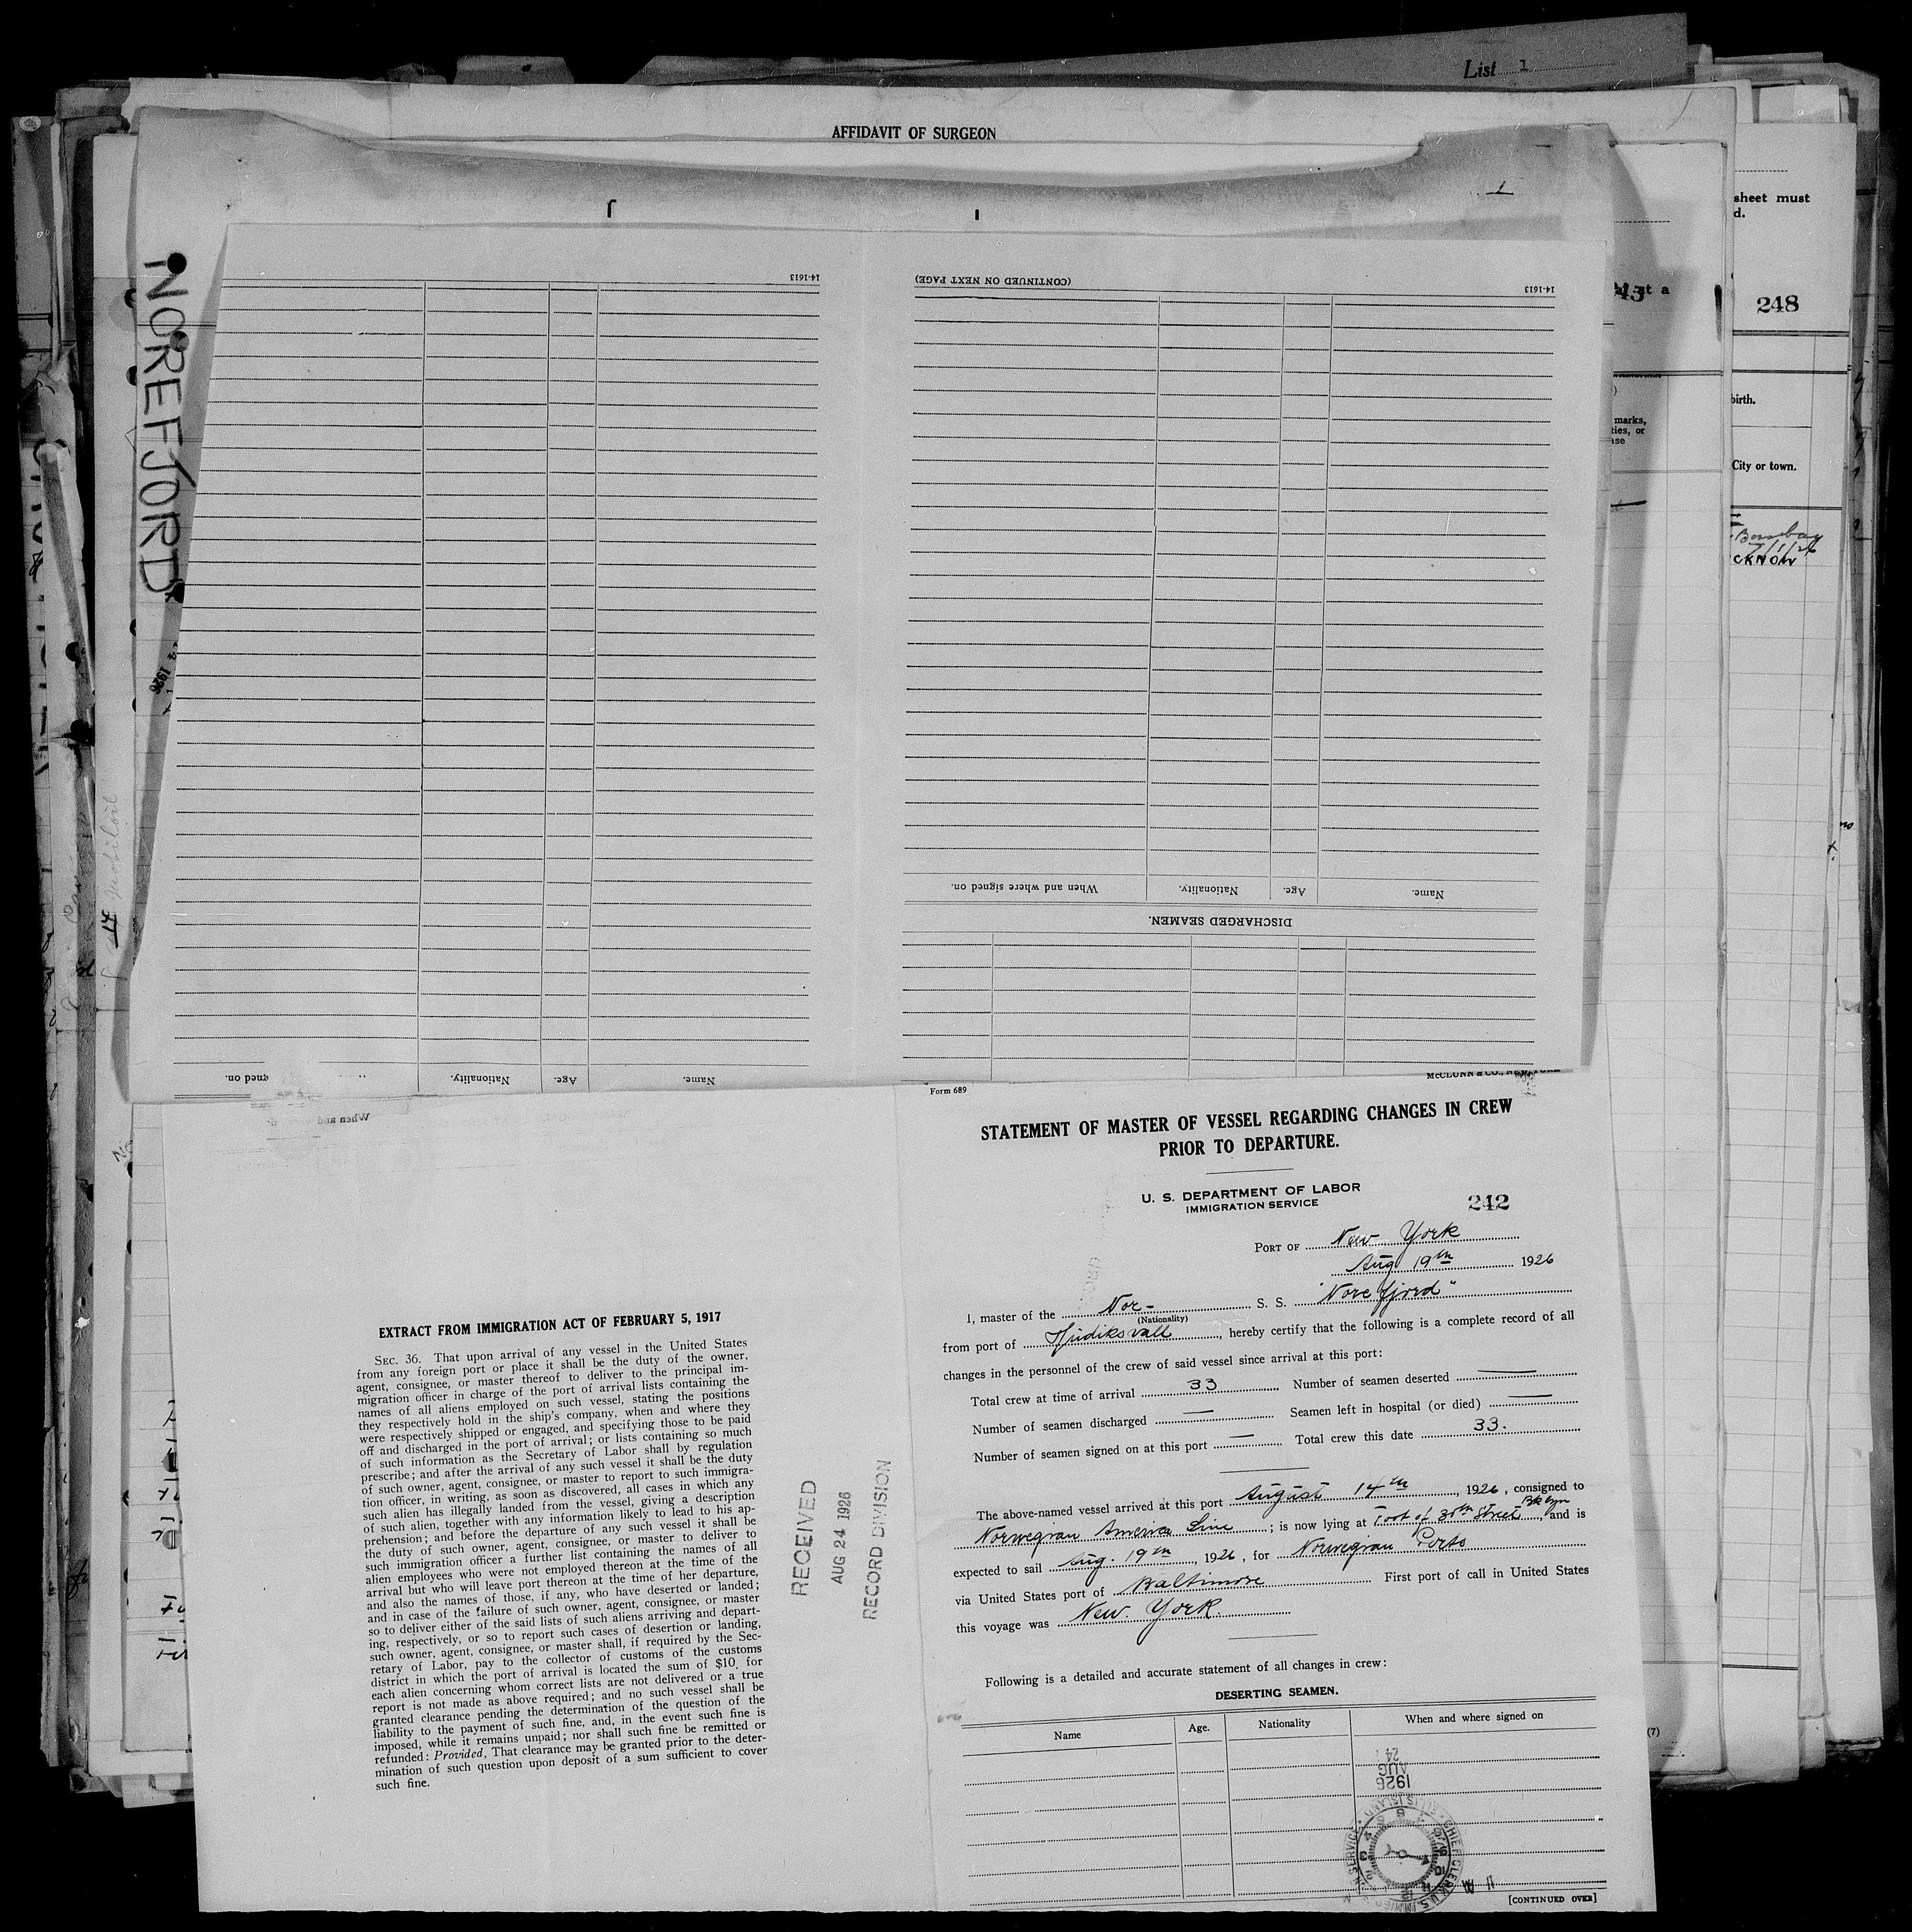 List 1
AFFIDAVIT OF SURGEON
1
sheet must
d.
st a
248
NOREFJORD
1926
14-1613
(CONTINUED ON NEXT PAGE)
14-1613
marks,
ties, or
ase
birth.
City or town.
Bombay
7/1/26
CKNOW
When and where signed on.
Nationality.
Age.
Name.
DISCHARGED SEAMEN.
gned on.
Nationality.
Age.
Name.
When and
McCLUNN & CO., NEW YORK
Form 689
STATEMENT OF MASTER OF VESSEL REGARDING CHANGES IN CREW
PRIOR TO DEPARTURE.
U. S. DEPARTMENT OF LABOR
IMMIGRATION SERVICE
242
PORT OF New York
Aug 19th 1926
I, master of the Nor- S. S. "Norefjord"
(Nationality)
from port of Hudiksvall, hereby certify that the following is a complete record of all
changes in the personnel of the crew of said vessel since arrival at this port:
Total crew at time of arrival 33 Number of seamen deserted —
Number of seamen discharged — Seamen left in hospital (or died) —
Number of seamen signed on at this port — Total crew this date 33.
The above-named vessel arrived at this port August 14th, 1926, consigned to
Norwegian America Line; is now lying at Foot of 30th Street Bklyn, and is
expected to sail Aug. 19th, 1926, for Norwegian Ports
via United States port of Baltimore First port of call in United States
this voyage was New York.
Following is a detailed and accurate statement of all changes in crew:
DESERTING SEAMEN.
Name Age. Nationality When and where signed on
24
AUG
1926
[CONTINUED OVER]
(7)
EXTRACT FROM IMMIGRATION ACT OF FEBRUARY 5, 1917
SEC. 36. That upon arrival of any vessel in the United States
from any foreign port or place it shall be the duty of the owner,
agent, consignee, or master thereof to deliver to the principal im-
migration officer in charge of the port of arrival lists containing the
names of all aliens employed on such vessel, stating the positions
they respectively hold in the ship's company, when and where they
were respectively shipped or engaged, and specifying those to be paid
off and discharged in the port of arrival; or lists containing so much
of such information as the Secretary of Labor shall by regulation
prescribe; and after the arrival of any such vessel it shall be the duty
of such owner, agent, consignee, or master to report to such immigra-
tion officer, in writing, as soon as discovered, all cases in which any
such alien has illegally landed from the vessel, giving a description
of such alien, together with any information likely to lead to his ap-
prehension; and before the departure of any such vessel it shall be
the duty of such owner, agent, consignee, or master to deliver to
such immigration officer a further list containing the names of all
alien employees who were not employed thereon at the time of the
arrival but who will leave port thereon at the time of her departure,
and also the names of those, if any, who have deserted or landed;
and in case of the failure of such owner, agent, consignee, or master
so to deliver either of the said lists of such aliens arriving and depart-
ing, respectively, or so to report such cases of desertion or landing,
such owner, agent, consignee, or master shall, if required by the Sec-
retary of Labor, pay to the collector of customs of the customs
district in which the port of arrival is located the sum of $10 for
each alien concerning whom correct lists are not delivered or a true
report is not made as above required; and no such vessel shall be
granted clearance pending the determination of the question of the
liability to the payment of such fine, and, in the event such fine is
imposed, while it remains unpaid; nor shall such fine be remitted or
refunded: Provided, That clearance may be granted prior to the deter-
mination of such question upon deposit of a sum sufficient to cover
such fine.
RECEIVED
AUG 24 1926
RECORD DIVISION